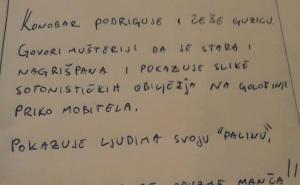 KONOBAR PODRIGUJE I ČEŠE GUZICU.
GOVORI MUŠTERIJI DA JE STARA I
NAGRIŠPANA I POKAZUJE SLIKE
SOTONISTIČKIH OBILJEŽJA NA GOLOTINJI
PRIKO MOBITELA.
POKAZUJE LJUDIMA SVOJU "PALINU",
MANČA"